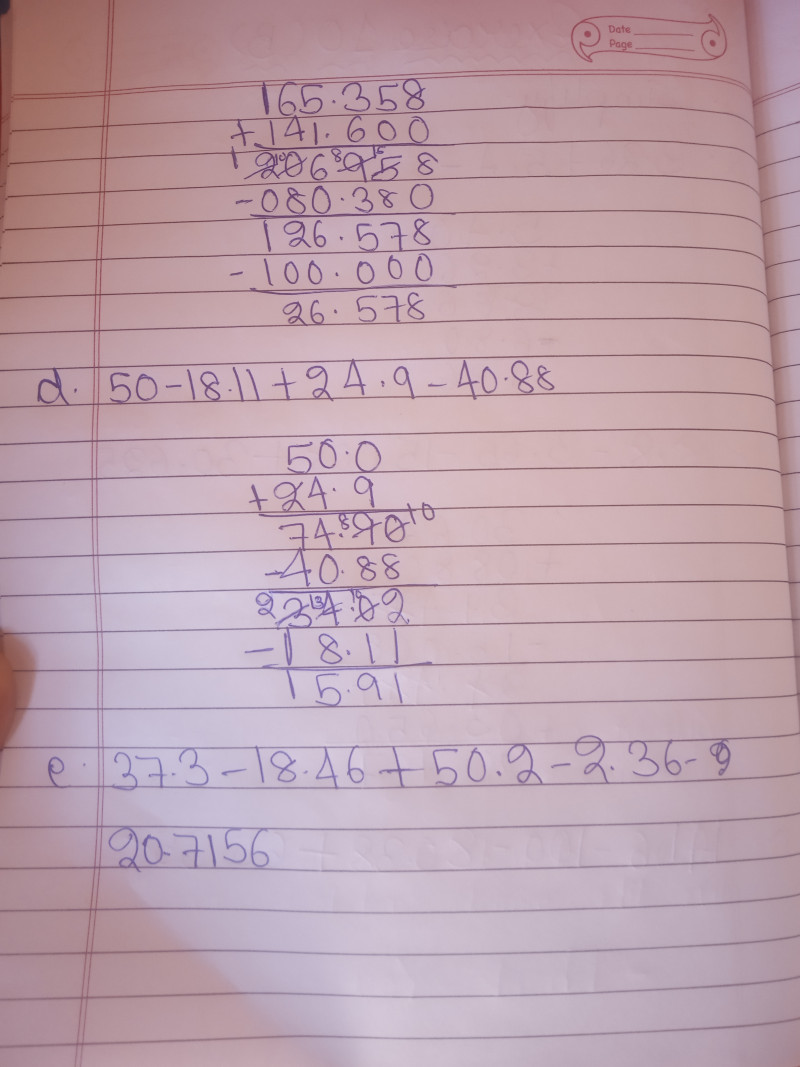 Date
Page
165.358
+141.600
206.958
-080.380
126.578
-100.000
26.578
d. 50-18.11+24.9-40.88
50.0
+24.9
74.90
-40.88
34.02
-18.11
15.91
e. 37.3-18.46+50.2-2.36-9
20.7156